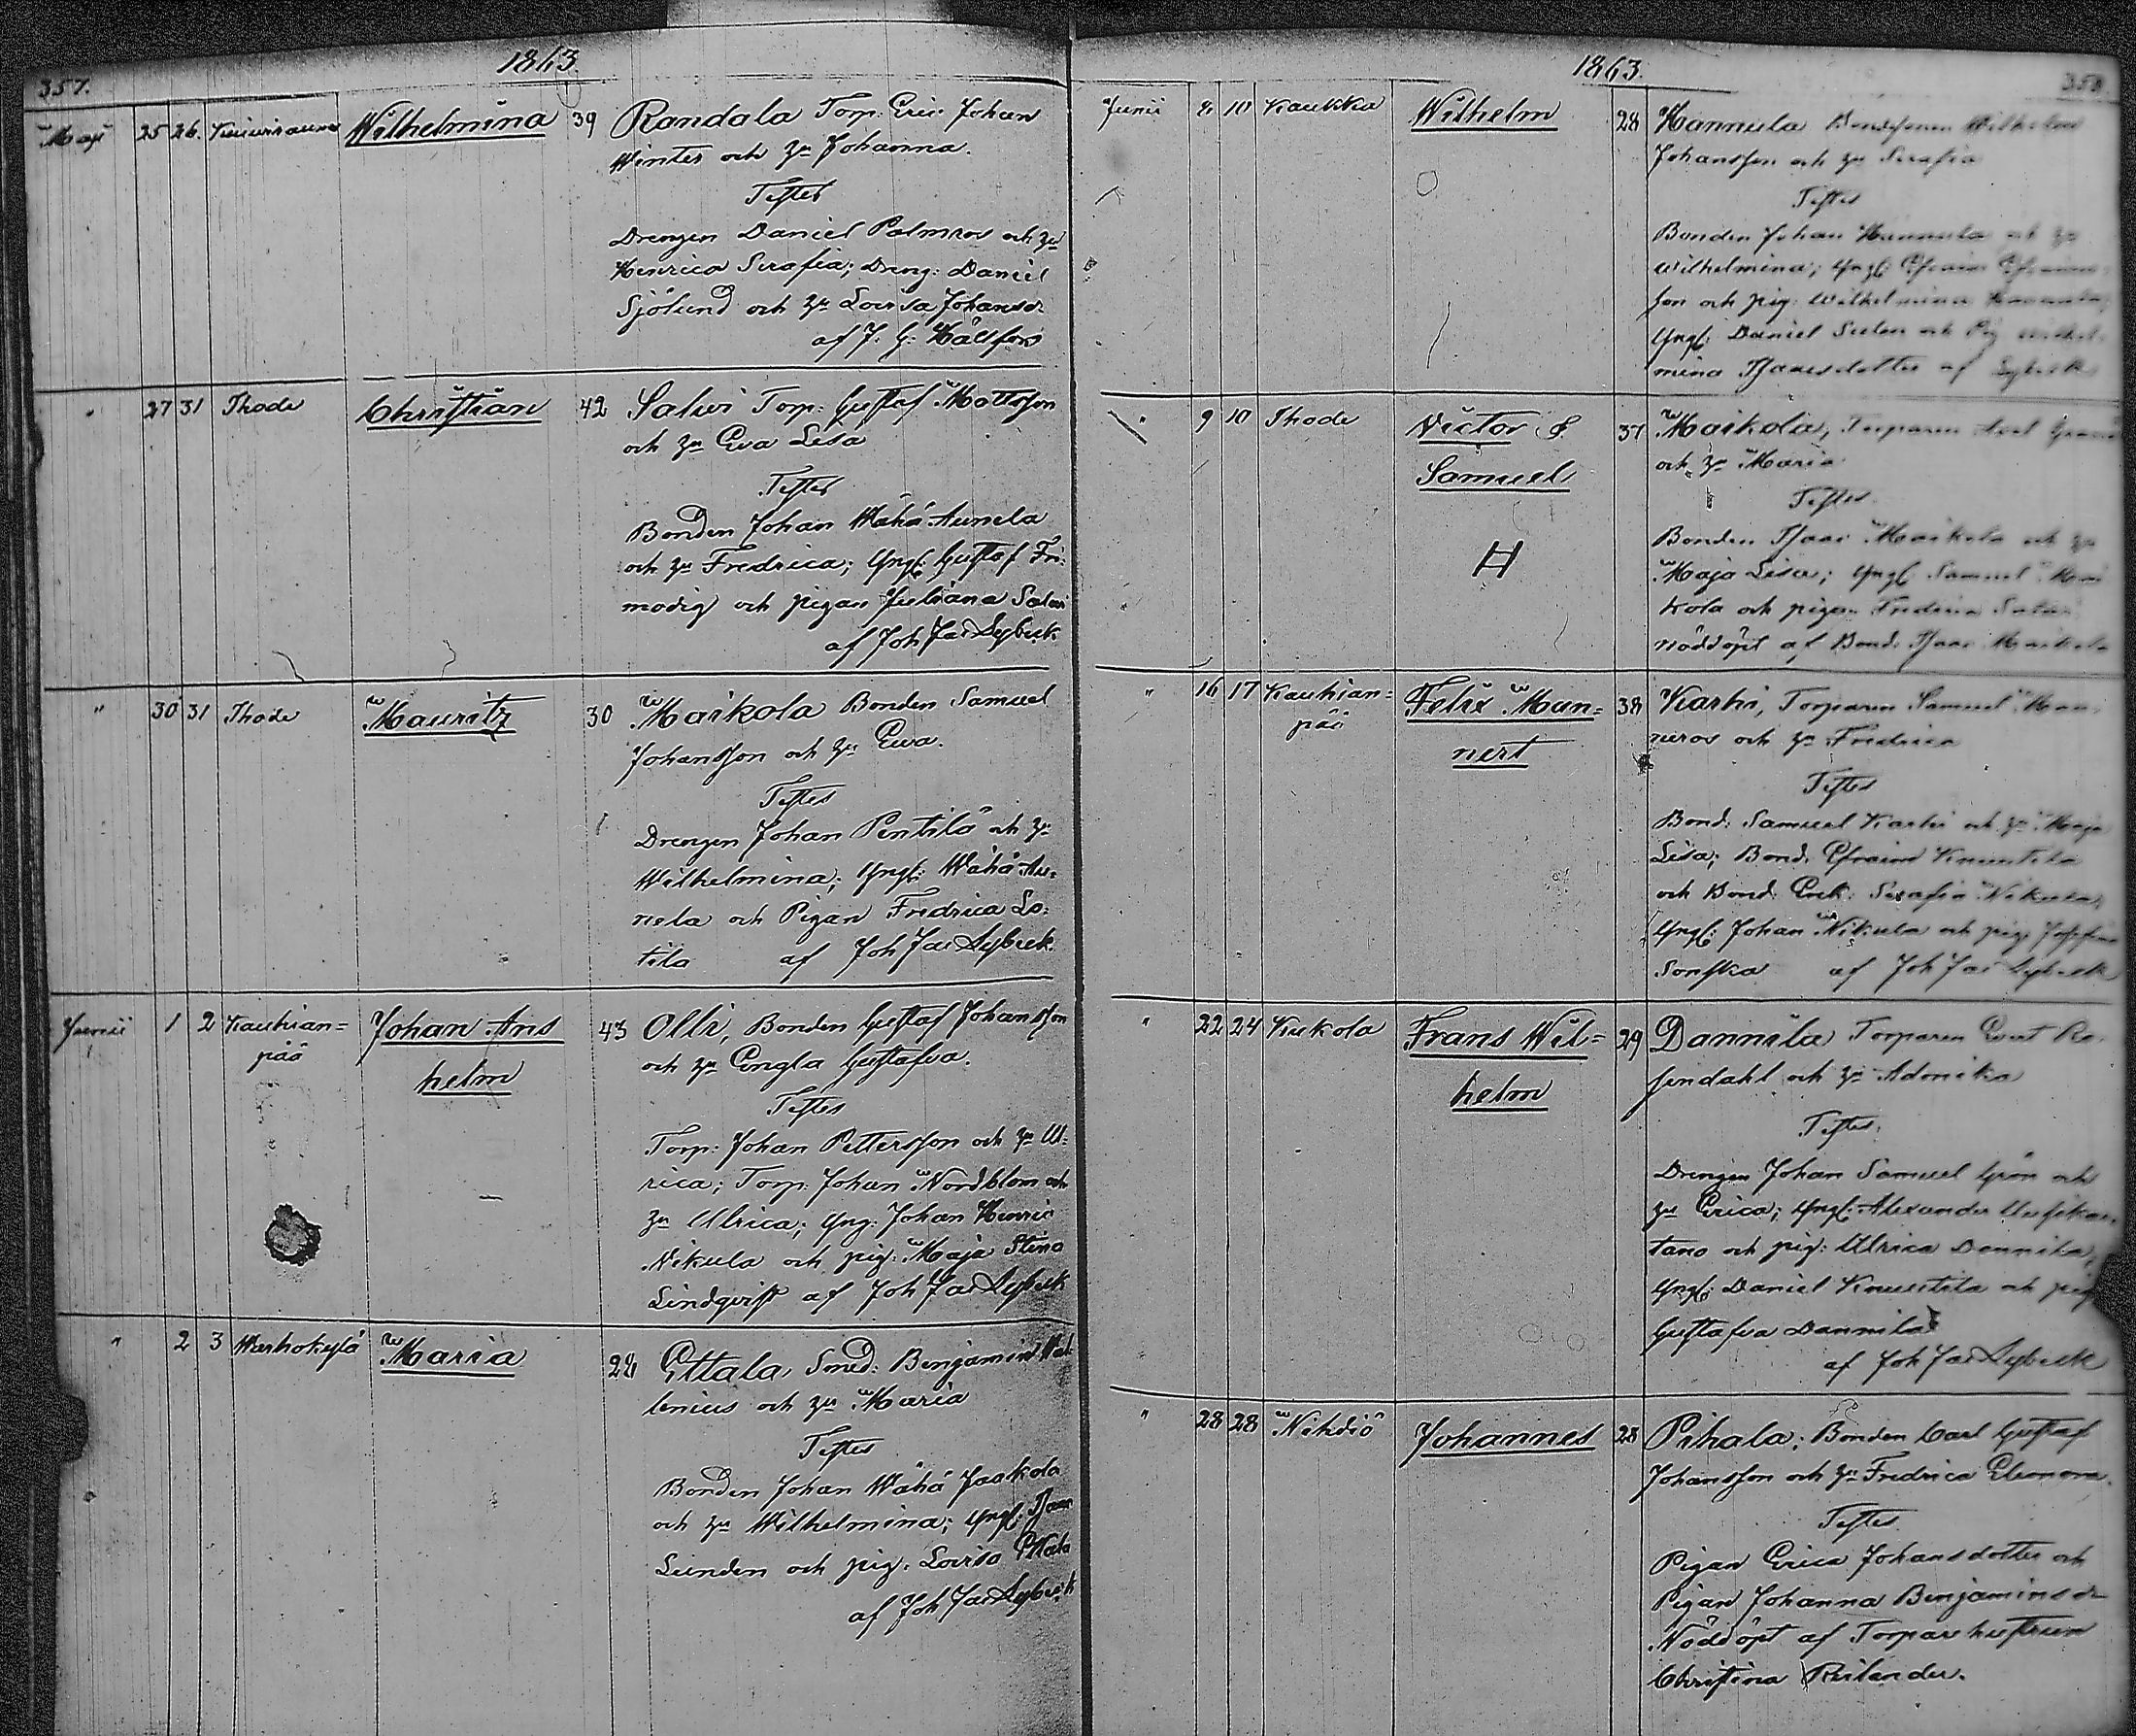 357.
1863.
Maji 25 26. Wilhelmina 39 Randala Torp. Eric Johan
Winter och hu Johanna.
Testes
Drengen Daniel Palmros och hu
Henrica Serafia; Dreng: Daniel
Sjölund och hu Lovisa Johansd.
af J. G. Hällfors
" 27 31 Thode Christian 42 Salwi Torp: Gustaf Mattsson
och hu Eva Lisa
Testes
Bonden Johan Wähä Aunela
och hu Fredrica; Yngl: Gustaf Fri-
modig och pigan Juliana Salwi
af Joh Jac Lybeck
" 30 31 Thode Mauritz 30 Maikola Bonden Samuel
Johansson och hu Ewa.
Testes
Drengen Johan Pentilä och hu
Wilhelmina; Yngl: Wähä-Au-
nela och Pigan Fredrica Lo-
tila af Joh Jac Lybeck
Junii 1 2 Kauhian=
pää Johan Ans
helm 43 Olli, Bonden Gustaf Johansson
och hu Engla Gustafva.
Testes
Torp: Johan Pettersson och hu Ul-
rica; Torp. Johan Nordblom och
hu Ulrica; Yng: Johan Henric
Nikula och pig: Maja Stina
Lindqvist af Joh Jac Lybeck
" 2 3 Warhokylä Maria 28 Ettala, Smed: Benjamin Wal-
lenius och hu Maria
Testes
Bonden Johan Wähä Jaakola
och hu Wilhelmina; Yngl: Isaac
Lunden och pig. Lovisa Ettala
af Joh Jac Lybeck
1863.
358
Junii 8 10 Kaukka Wilhelm 28 Hannula Bondesonen Wilhelm
Johansson och hu Serafia
Testes
Bonden Johan Hannula och hu
Wilhelmina; Yngl: Efraim Efraims-
son och pig: Wilhelmina Hannula;
Yngl. Daniel och Pig Wilhel-
mina Isaacsdotter af Lybeck
" 9 10 Thode Victor &
Samuel
H 37 Maikola, Torparen
och hu Maria
Testes.
Bonden Isaac Maikola och hu
Maja Lisa; Yngl Samuel Mai
kola och pigan Fredrica
nöddöpt af Bond. Isaac Maikola
" 16 17 Kauhian=
pää Felix Man=
nert 38 Karhi, Torparen Samuel Man-
neros och hu Fredrica
Testes
Bond. Samuel Karhi och hu Maja
Lisa; Bond. Efraim Knuutila
och Bond. Enk. Serafia Nikula;
Yngl: Johan Nikula och pig. Josefina
Sonska af Joh Jac Lybeck
" 22 24 Kukola Frans Wil=
helm 29 Dannila Torparen Ro-
sendahl och hu Adonika
Testes.
Drengen Johan Samuel Grön och
hu Erica; Yngl: Alexander Uusikar-
tano och pig: Ulrica Dannila;
Yngl: Daniel Knuutila och pig
Gustafva Dannila
af Joh Jac Lybeck
" 28 28 Nikdiö Johannes 28 Pihala; Bonden Carl Gustaf
Johansson och hu Fredrica Eleonora.
Testes.
Pigan Erica Johansdotter och
Pigan Johanna Benjaminsdr
Nöddöpt af Torpare hustrun
Christina Reilander.